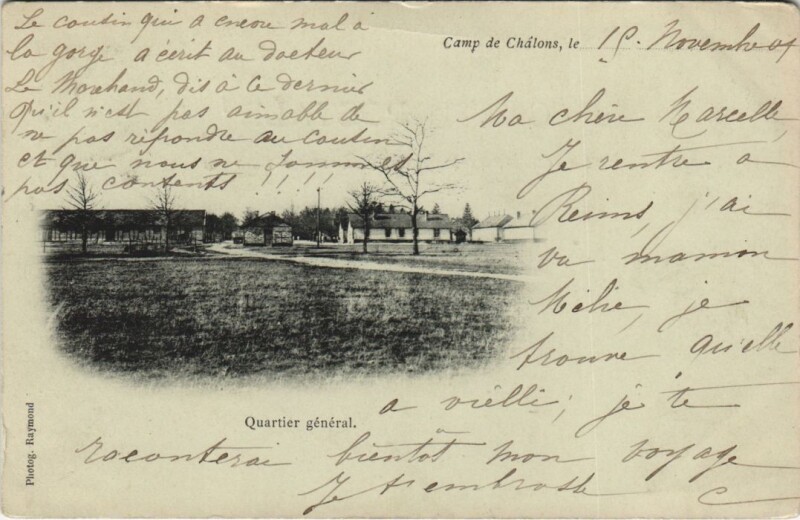 Le cousin qui a encore mal à
la gorge a écrit au docteur
Le Marchand, dis à ce dernier
Qu'il n'est pas aimable de
ne pas répondre au cousin
et que nous ne sommes
pas contents !!!!
Camp de Châlons, le 15 Novembre
Ma chère Marcelle,
Je rentre à
Reims, j'ai
vu maman
Mélie, je
trouve qu'elle
a vielli; je te
raconterai bientôt mon voyage
Je t'embrasse
Quartier général.
Photog. Raymond